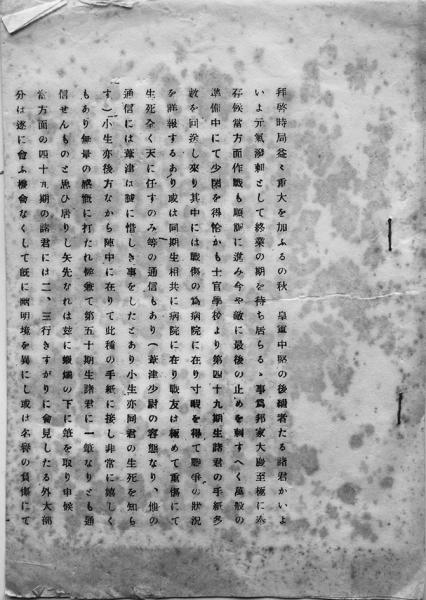 拝啓時局益々重大を加ふるの秋　皇軍中堅の後續者たる諸君がいよ
いよ元氣溌剌として終業の期を待ち居らるゝ事爲邦家大慶至極に奉
存候當方面作戰も順調に進み今や敵に最後の止めを刺すべく萬般の
準備中にて少閑を得恰かも士官學校より第四十九期生諸君の手紙多
數を回送し來り其中には戰傷の爲病院に在り寸暇を得て戰爭の狀況
を詳報するあり或は同期生相共に病院に在り戰友は極めて重傷にて
生死全く天に任すのみ等の通信もあり（葦津少尉の容態なり、他の
通信には葦津は誠に惜しき事をしたとあり小生亦同君の生死を知ら
す）小生亦後方ながら陣中に在りて此種の手紙に接し非常に嬉しく
もあり無量の感慨に打たれ候兼て第五十期生諸君に一筆なりとも通
信せんものと思ひ居りし矢先なれば茲に蠟燭の下に筆を取り申候
當方面の四十九期の諸君には二、三行きすがりに會見したる外大部
分は遂に會ふ機會なくして既に幽明境を異にし或は名譽の負傷にて